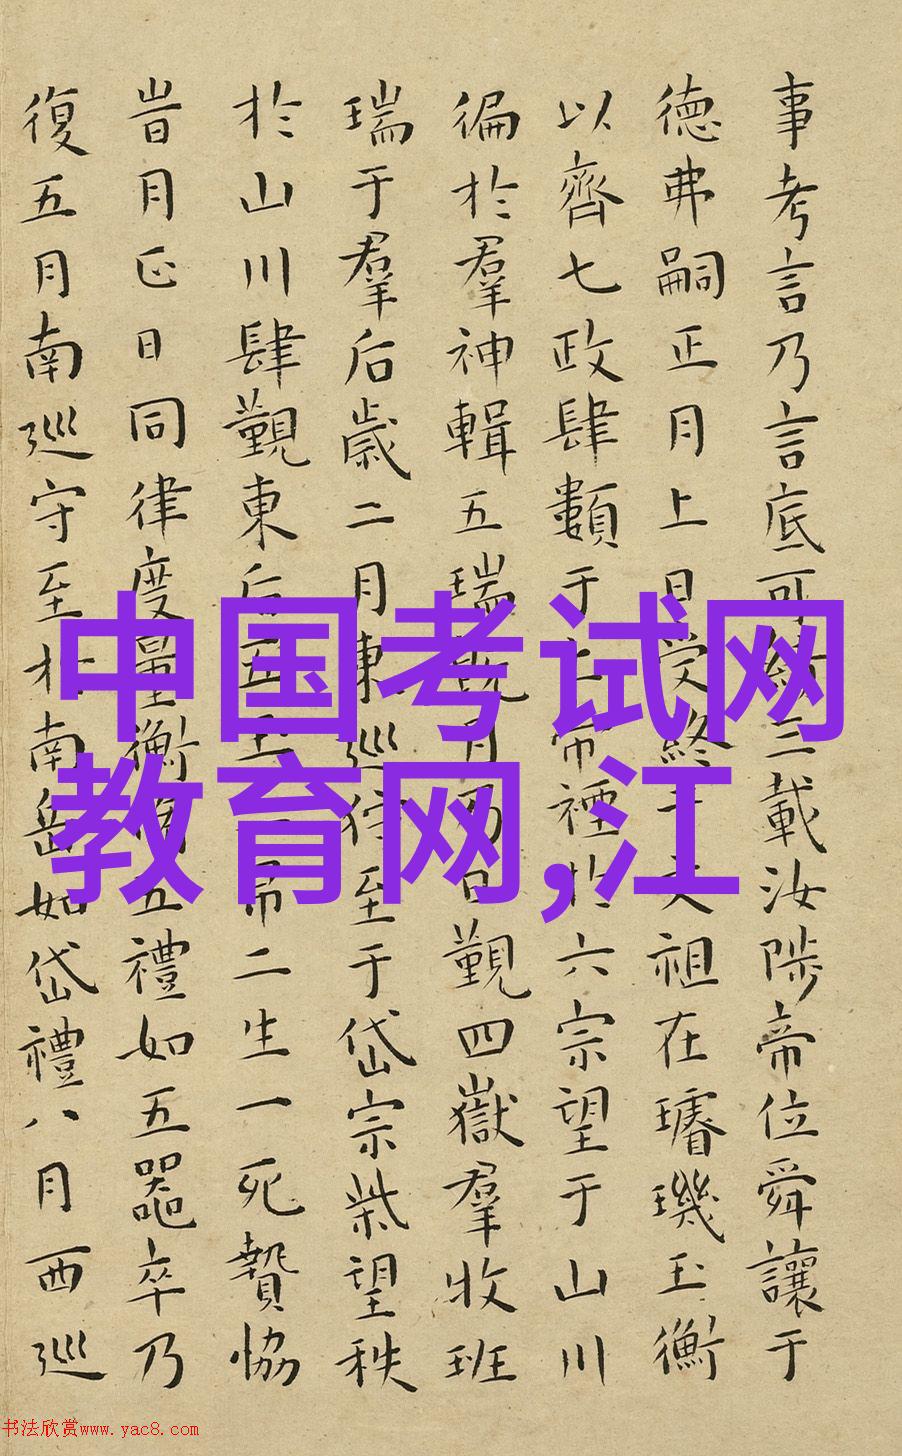 事考言乃言底可績三載汝陟帝位舜讓于
德弗嗣正月上日受終于文祖在璿璣玉衡
以齊七政肆類于上帝禋於六宗望于山川
徧於羣神輯五瑞既月乃日覲四嶽羣牧班
瑞于羣后歲二月東巡狩至于岱宗柴望秩
於山川肆覲東后五玉三帛二生一死贄協
旹月正日同律度量衡脩五禮如五器卒乃
復五月南巡守至於南岳如岱禮八月西巡
中国考试网
教育网,江
书法欣赏www.yac8.com